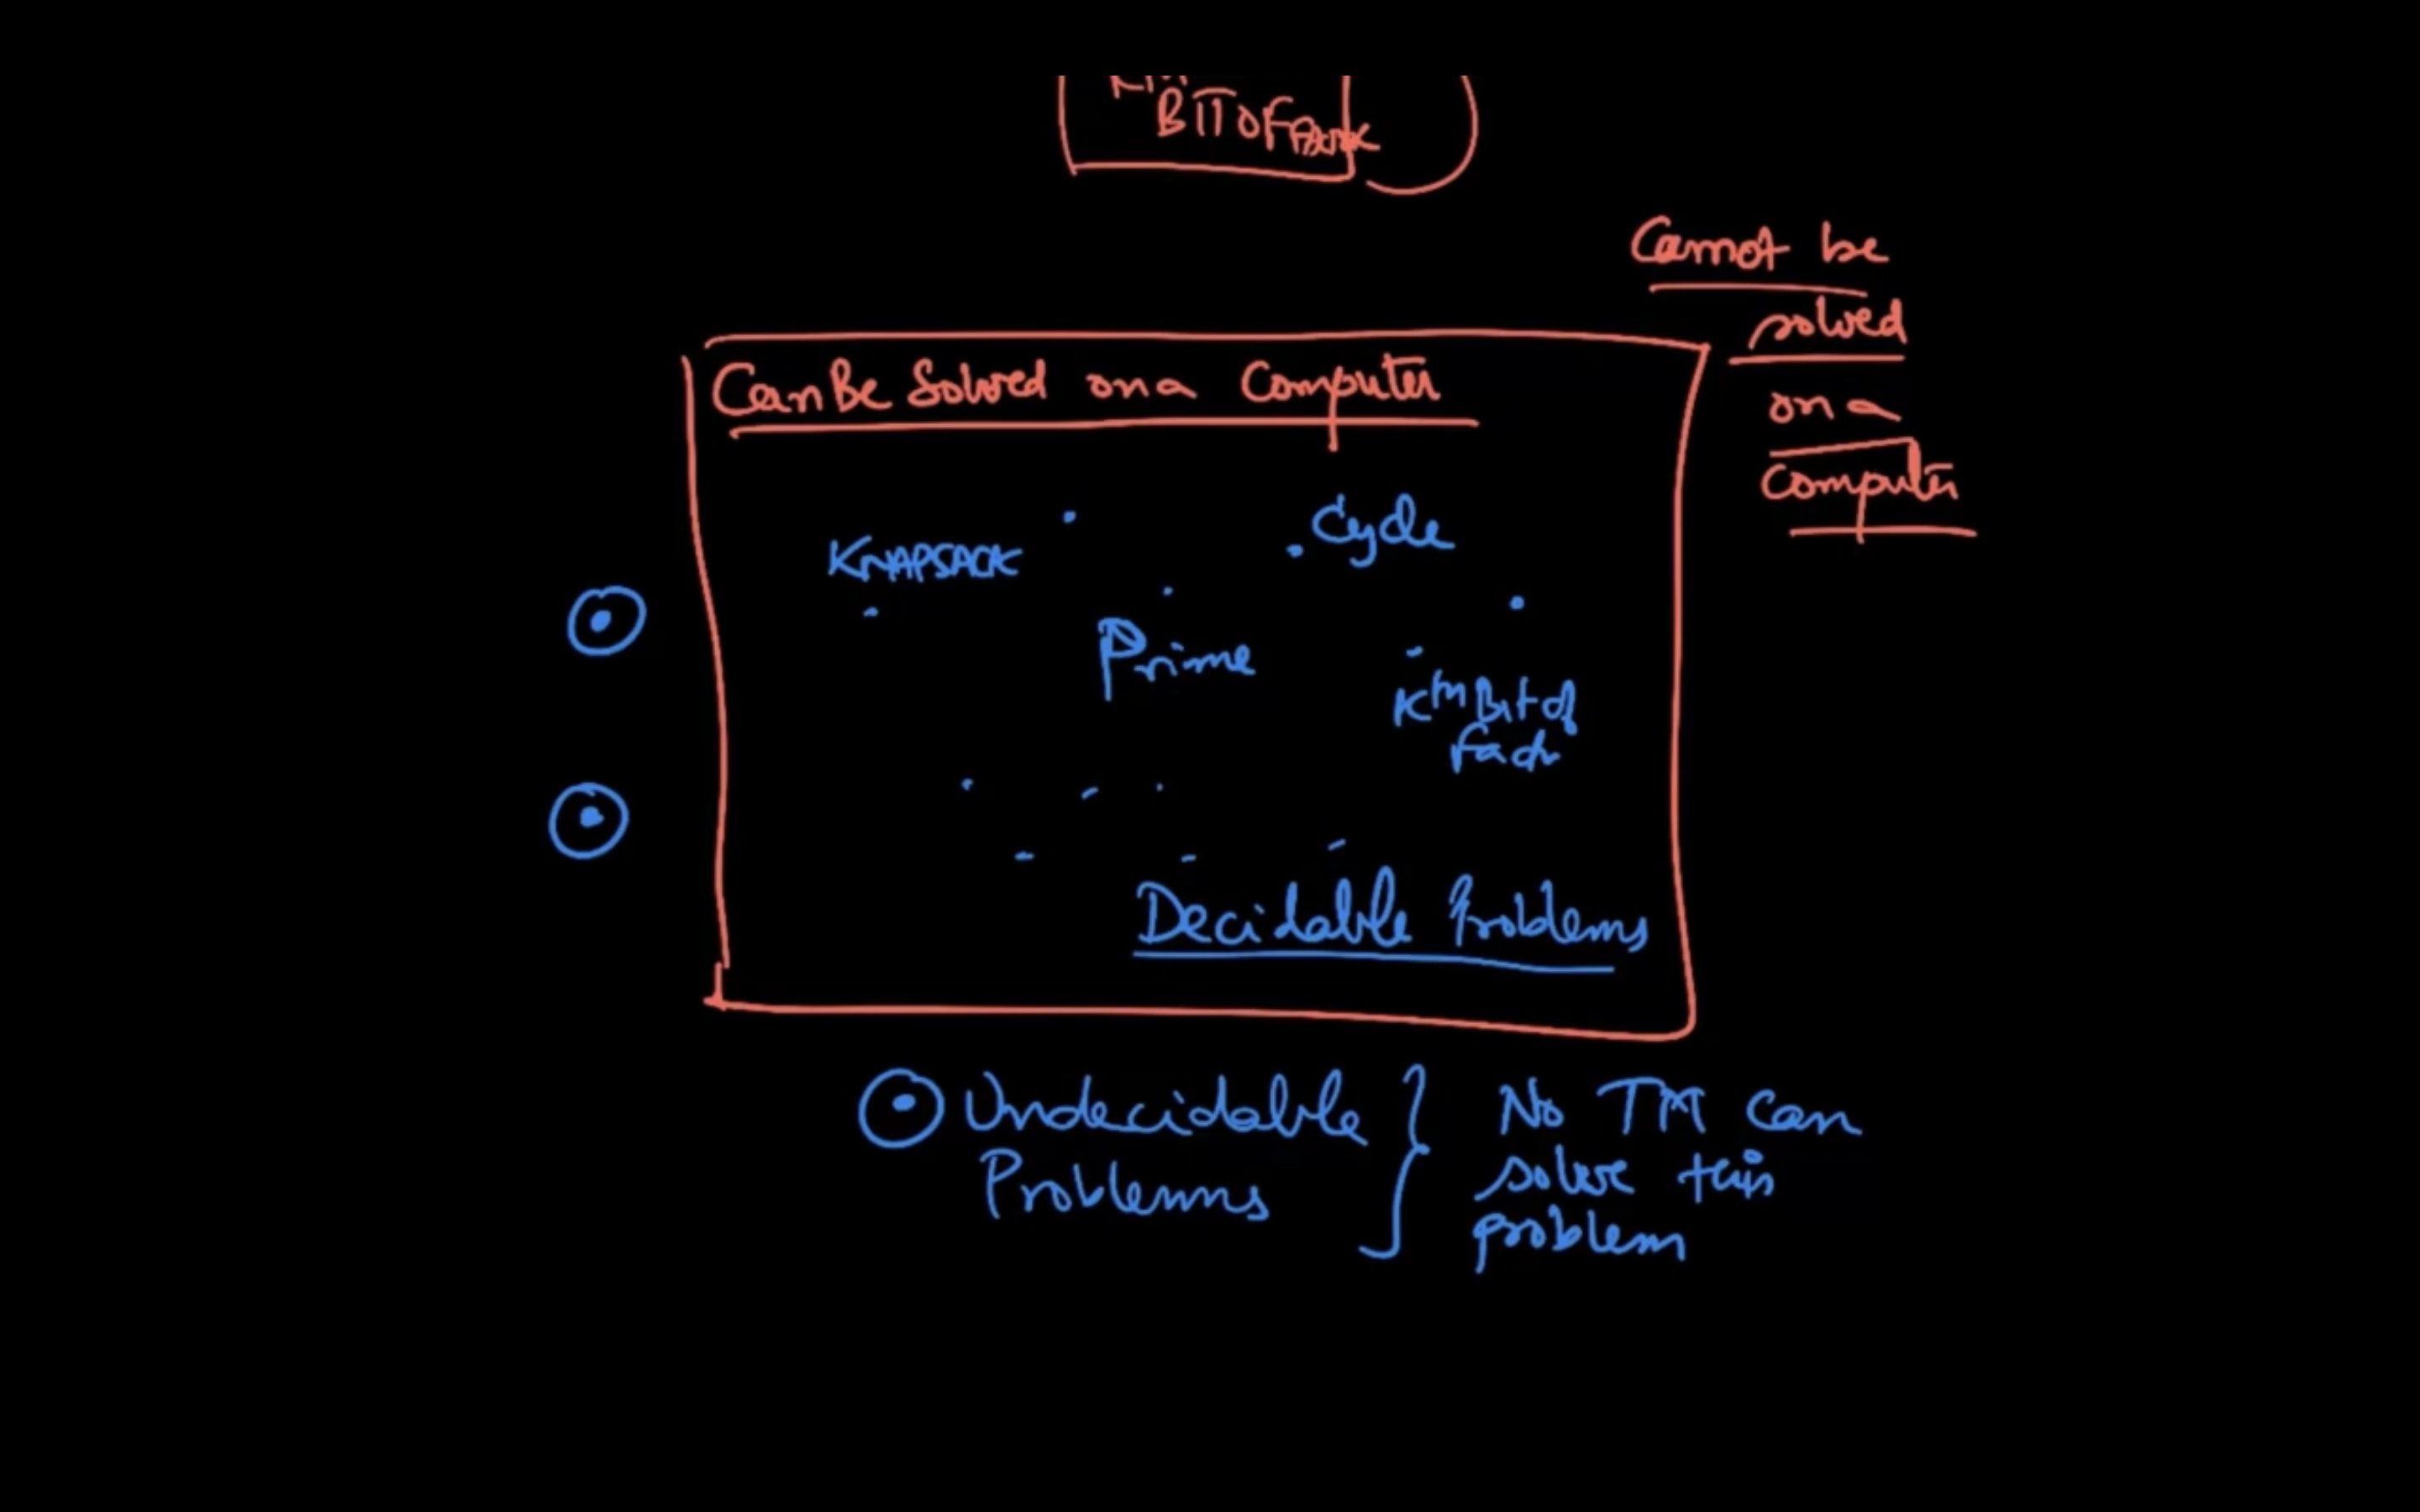 BIT OF
Cannot be
solved
on a
Computer
Can Be Solved on a Computer
Cycle
KNAPSACK
Prime
Kth Bit of
Fach
Decidable Problems
Undecidable
Problems
No TM Can
solve this
problem